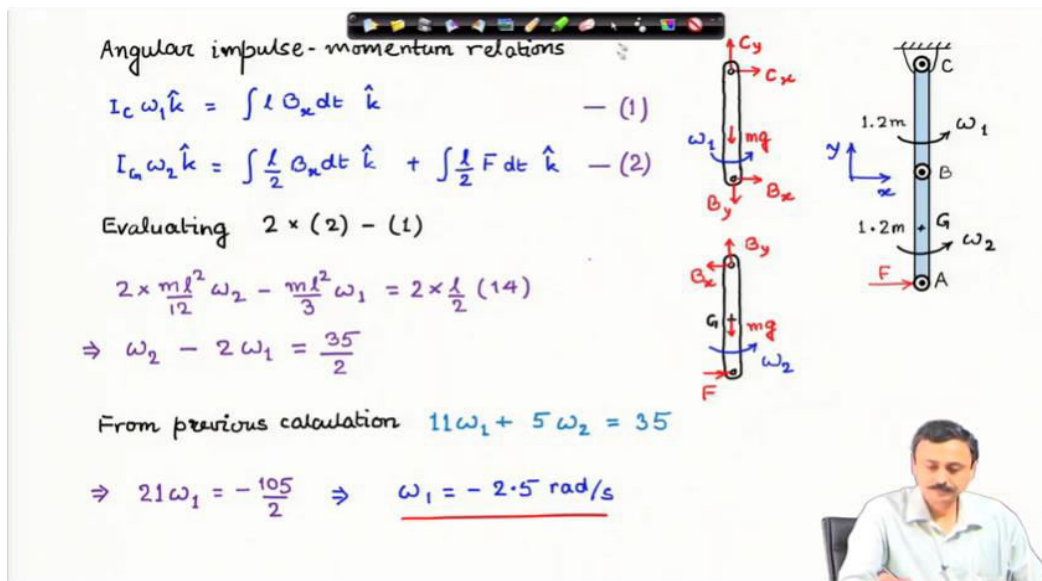 Angular impulse-momentum relations
I_C ω₁ k̂ = ∫ l Bₓ dt k̂ — (1)
I_G ω₂ k̂ = ∫ l/2 Bₓ dt k̂ + ∫ l/2 F dt k̂ — (2)
Evaluating 2 × (2) - (1)
2 × ml²/12 ω₂ - ml²/3 ω₁ = 2 × l/2 (14)
⇒ ω₂ - 2ω₁ = 35/2
From previous calculation 11ω₁ + 5ω₂ = 35
⇒ 21ω₁ = -105/2 ⇒ ω₁ = -2.5 rad/s
C_y
Cₓ
ω₁
mg
Bₓ
B_y
B_y
Bₓ
G
mg
ω₂
F
C
1.2m
ω₁
y
x
B
1.2m
G
ω₂
F
A